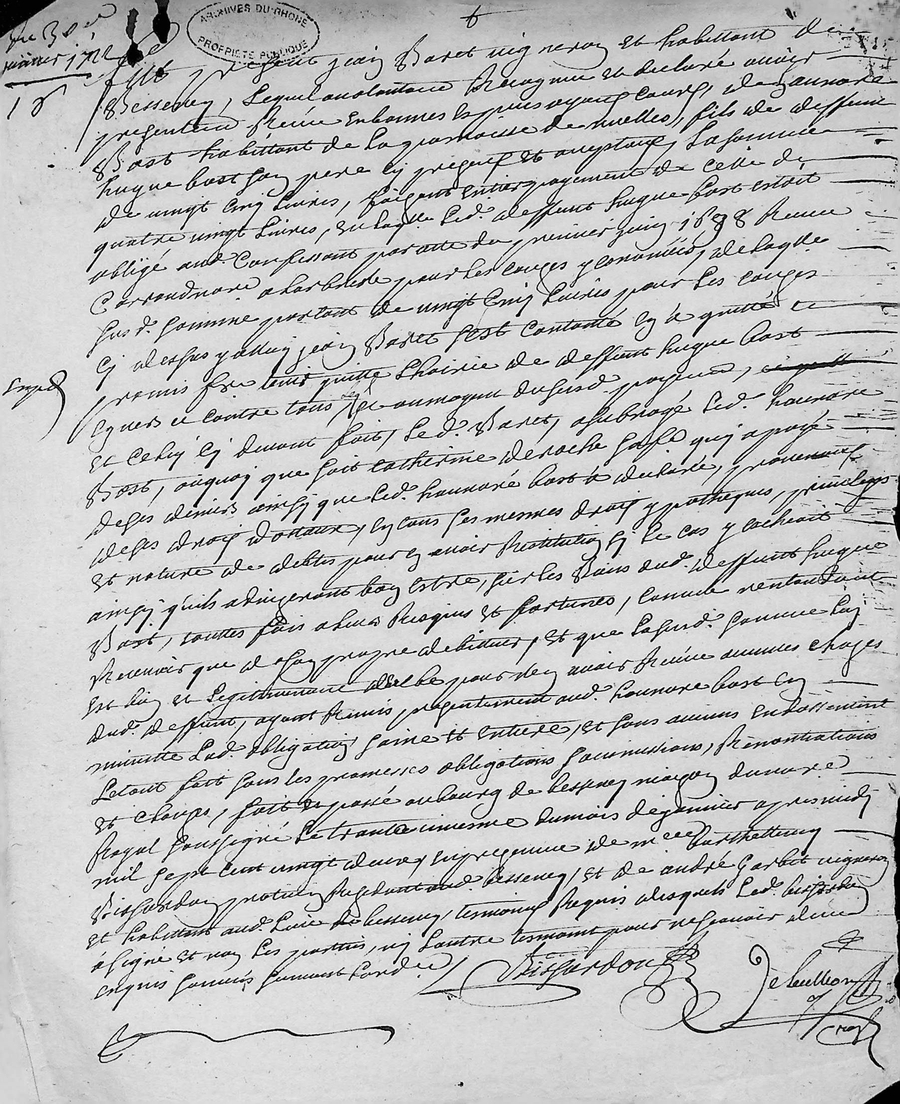 Du 30e
janvier 1722
ARCHIVES DU RHÔNE
PROPRIÉTÉ PUBLIQUE
6
fut present jean Baret vigneron et habittant de
Bessenay, Lequel a volontaire Recognu et declaré avoir
presentem Reçeu en bonnes especes ayant cours, de hannoré
Bast habittant de la parroisse de fils de deffunt
hugue bast son pere cy present et acceptant, La somme
de vingt cinq livres, faisant entier payement de celle de
quatre vingt Livres, en laqlle led. deffunt hugue bast estoit
obligé aud. Confessant par acte du premier juin 1698 Receu
pour les causes y contenues, de laqlle
susd. somme portant de vingt cinq livres pour les causes
cy dessus y alluy jean Baret s'est contanté en a quitté
promis fre tenir quitte L'hoirie de deffunt hugue bast
envers et contre tous au moyen dususd. payement,
et cethuy cy devant fait, led. Baret, a subrogé led. hannoré
Bast, ou quoy que soit catherine deroche sa fe qui a payé
de ses deniers ainsy que led. hannoré bast a declaré, provenant
de ses droits dotaux, en tous ses mesmes droits yppotheques, privileges
et nature de debtes pour en avoir Restitution sy le cas y escheoit
ainsy qu'ils adviseront bon estre, sur les Biens dud. deffunt hugue
Bast, touttes fois a leurs Risques et fortunes, comme n'entendant
Recevoir que de son propre debiteur, et que Lasusd. somme luy
est due et legitimement pour n'en avoir Receu aucunes choses
dud. deffunt, ayant Remis presentement aud. hannoré bast en
minutte Lad. obligation saine et entiere, et sans aucuns Endossement
Le tout fait sous les promesses obligations soumissions, Renontiations
et clauses, fait et passé au bourg de bessenay maison du nore
Royal soussigné Le trantieme du mois de janvier apres midy
mil sept cent vingt deux, en presence de mre barthellemy
Brossardon praticien Residant aud. bessenay, et de andré Garbit vigneron
et habittant aud. Lieu de bessenay, temoins Requis desquels Led. brossardon
a signé et non les parties, ny L'autre temoint pour ne sçavoir de ce
enquis sommés
Brossardon